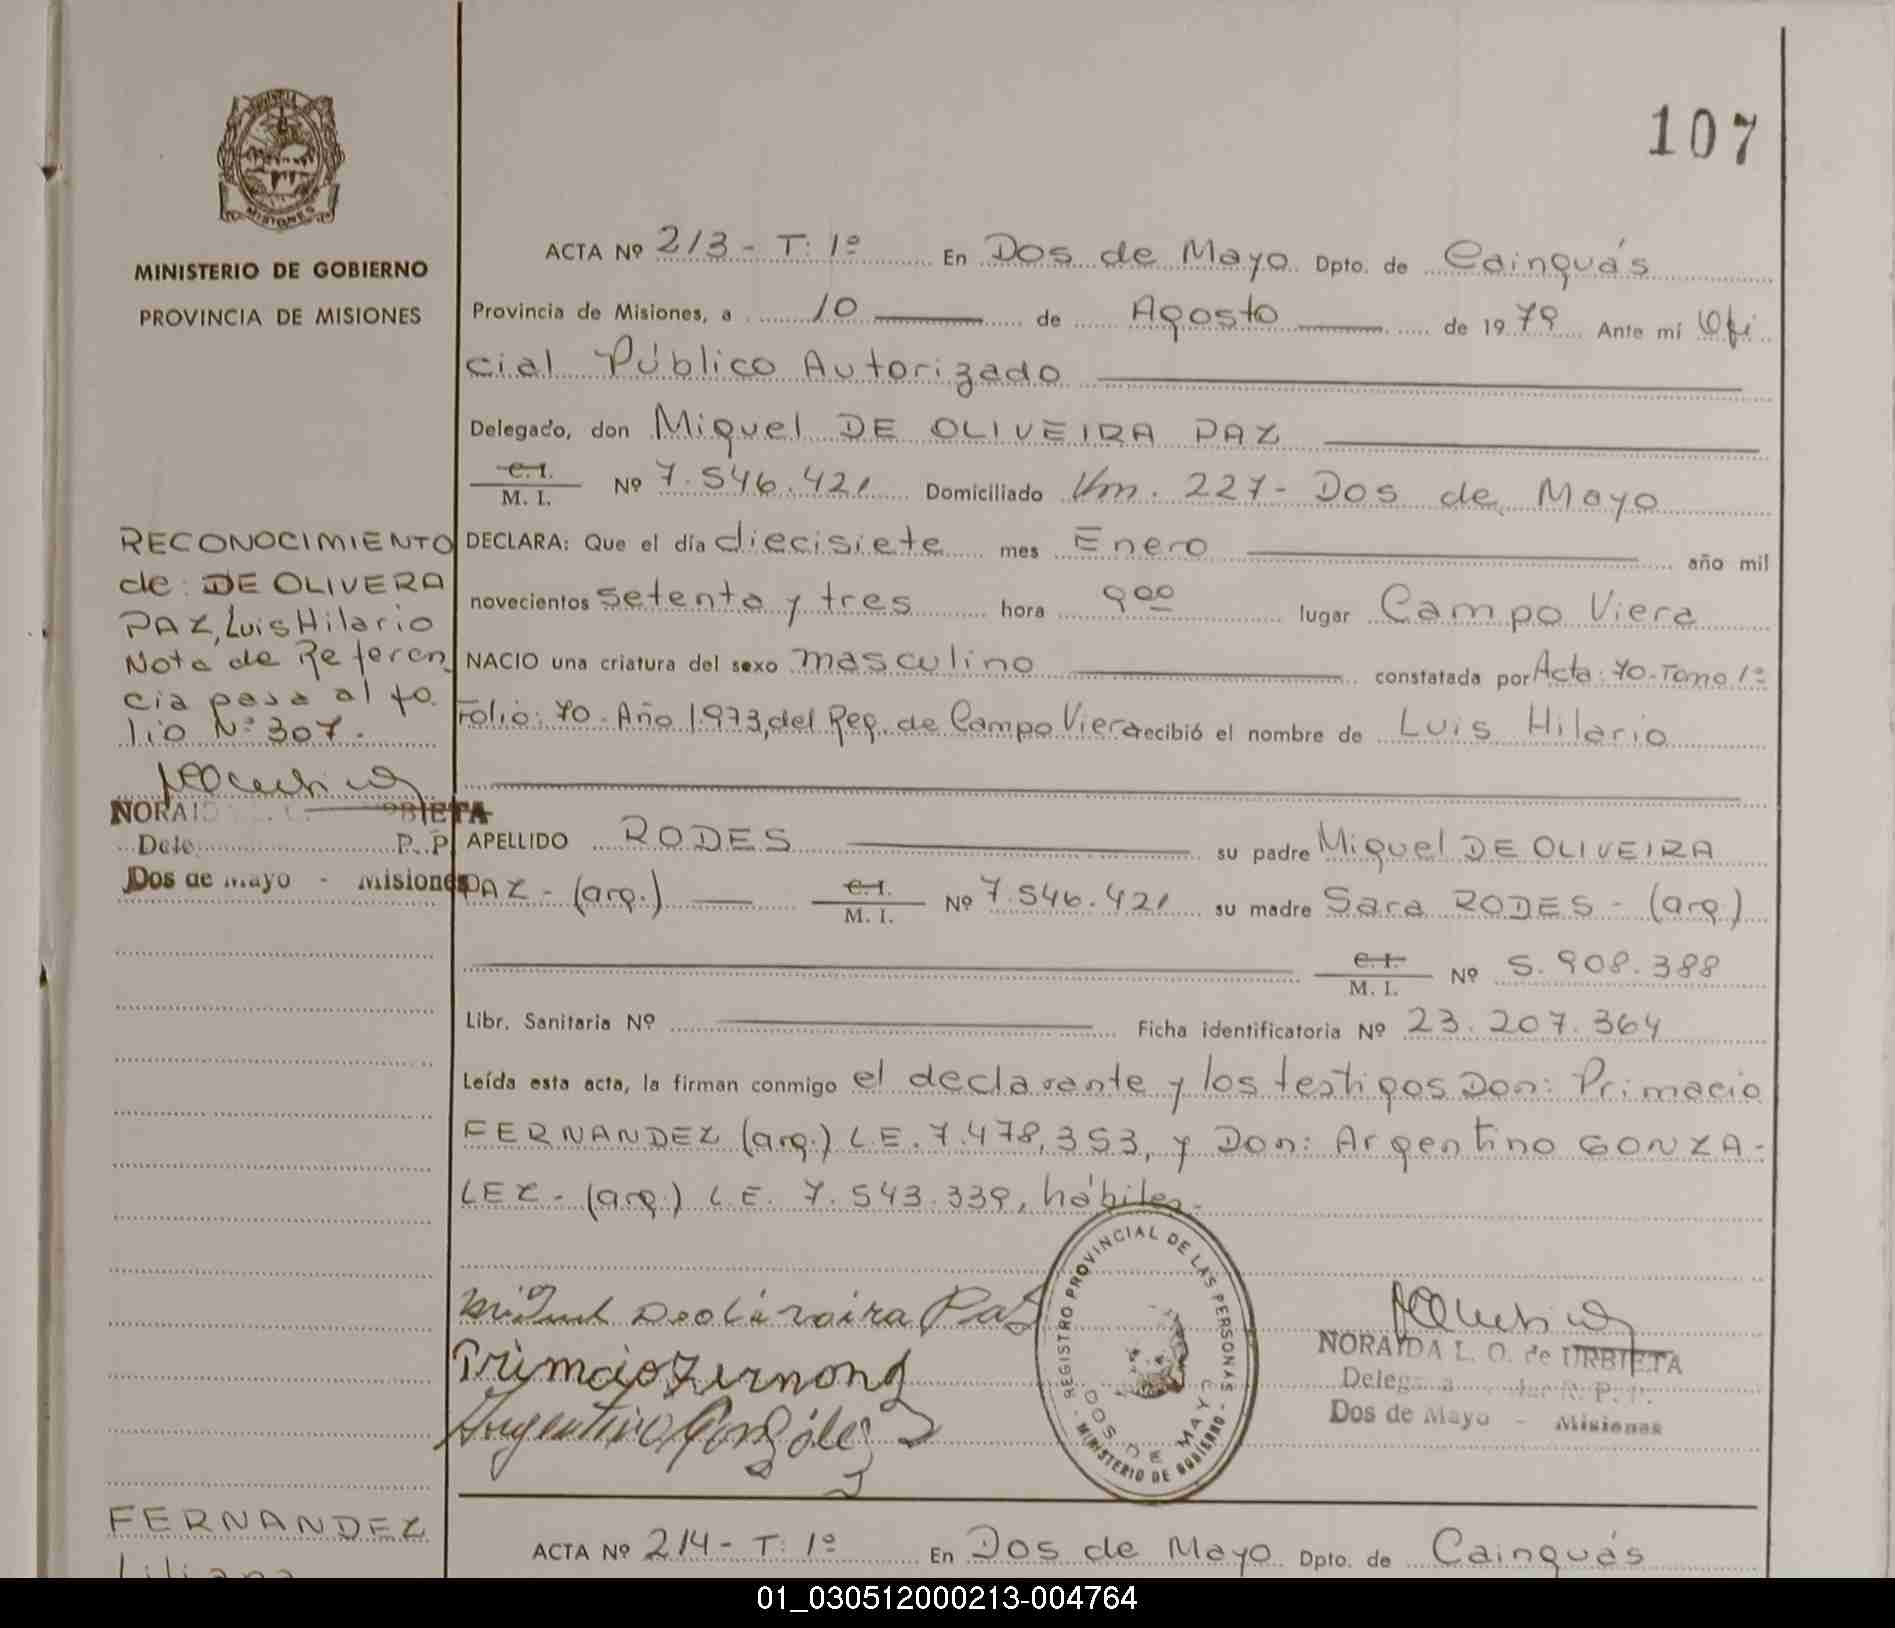 107
MINISTERIO DE GOBIERNO
PROVINCIA DE MISIONES
RECONOCIMIENTO
de: DE OLIVERA
PAZ, Luis Hilario
Nota de Referen
cia pasa al fo.
lio Nº 307.
NORAI OBIETA
Dele P. P
Dos de Mayo - Misiones
ACTA Nº 213 - T: 1º En Dos de Mayo Dpto. de Cainguás
Provincia de Misiones, a 10 de Agosto de 1979 Ante mí Ofi
cial Público Autorizado
Delegado, don Miguel DE OLIVEIRA PAZ
C.I.
M. I. Nº 7.546.421 Domiciliado Km. 227 - Dos de Mayo
DECLARA: Que el día diecisiete mes Enero año mil
novecientos setenta y tres hora 9 00 lugar Campo Viera
NACIO una criatura del sexo masculino constatada por Acta: 70 - Tomo 1º
Folio: 70 - Año 1.973, del Reg. de Campo Viera recibió el nombre de Luis Hilario
APELLIDO RODES su padre Miguel DE OLIVEIRA
PAZ - (arg.) C.I. M. I. Nº 7.546.421 su madre Sara RODES - (arg)
C.I.
M. I. Nº 5.908.388
Libr. Sanitaria Nº Ficha identificatoria Nº 23.207.364
Leída esta acta, la firman conmigo el declarante y los testigos Don: Primacio
FERNANDEZ (arg.) L.E. 7.478.353, y Don: Argentino GONZA-
LEZ - (arg.) L.E. 7.543.339, hábiles.
Deoliraira Paz
Argentino González
REGISTRO PROVINCIAL DE LAS PERSONAS
DOS DE MAYO
- MINISTERIO DE GOBIERNO -
NORAIDA L. O. de URBIETA
Delega R. P. P.
Dos de Mayo - Misiones
FERNANDEZ
Liliana
ACTA Nº 214 - T: 1º En Dos de Mayo Dpto. de Cainguás
01_030512000213-004764